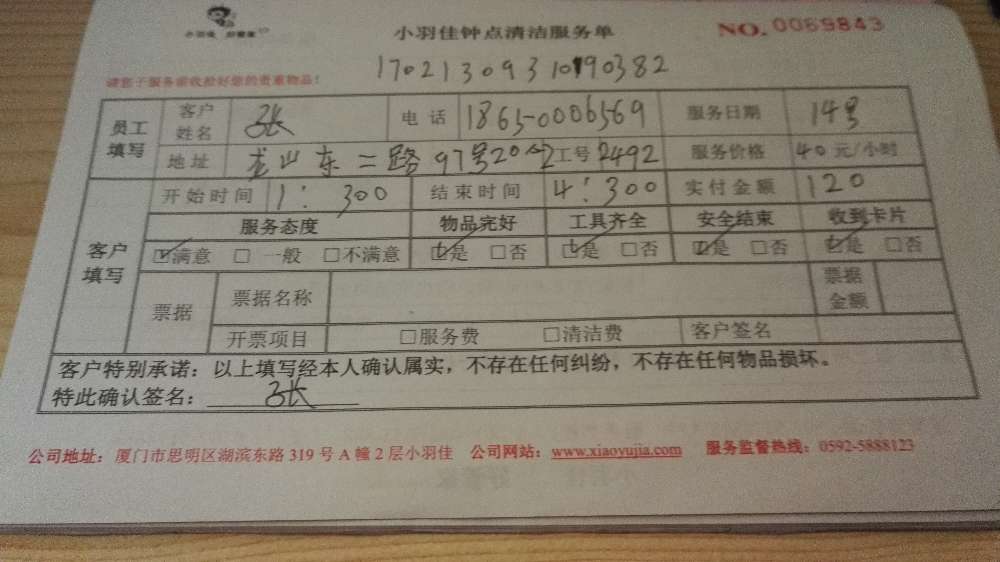 小羽佳 好管家
小羽佳钟点清洁服务单 NO. 0069843
17021309310190382
请您于服务前收拾好您的贵重物品!
员工填写 客户姓名 张 电话 1865-0006569 服务日期 14号
地址 龙山东二路97号202 工号 2492 服务价格 40元/小时
客户填写 开始时间 1:300 结束时间 4:300 实付金额 120
服务态度 物品完好 工具齐全 安全结束 收到卡片
☑满意 □一般 □不满意 ☑是 □否 ☑是 □否 ☑是 □否 ☑是 □否
票据 票据名称 票据金额
开票项目 □服务费 □清洁费 客户签名
客户特别承诺:以上填写经本人确认属实,不存在任何纠纷,不存在任何物品损坏。
特此确认签名: 张
公司地址:厦门市思明区湖滨东路319号A幢2层小羽佳 公司网站:www.xiaoyujia.com 服务监督热线:0592-5888123